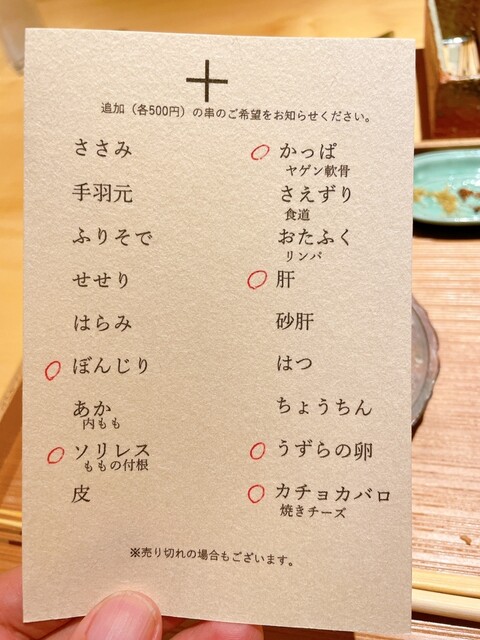 十
追加（各500円）の串のご希望をお知らせください。
ささみ
手羽元
ふりそで
せせり
はらみ
ぼんじり
あか
内もも
ソリレス
ももの付根
皮
かっぱ
ヤゲン軟骨
さえずり
食道
おたふく
リンパ
肝
砂肝
はつ
ちょうちん
うずらの卵
カチョカバロ
焼きチーズ
※売り切れの場合もございます。